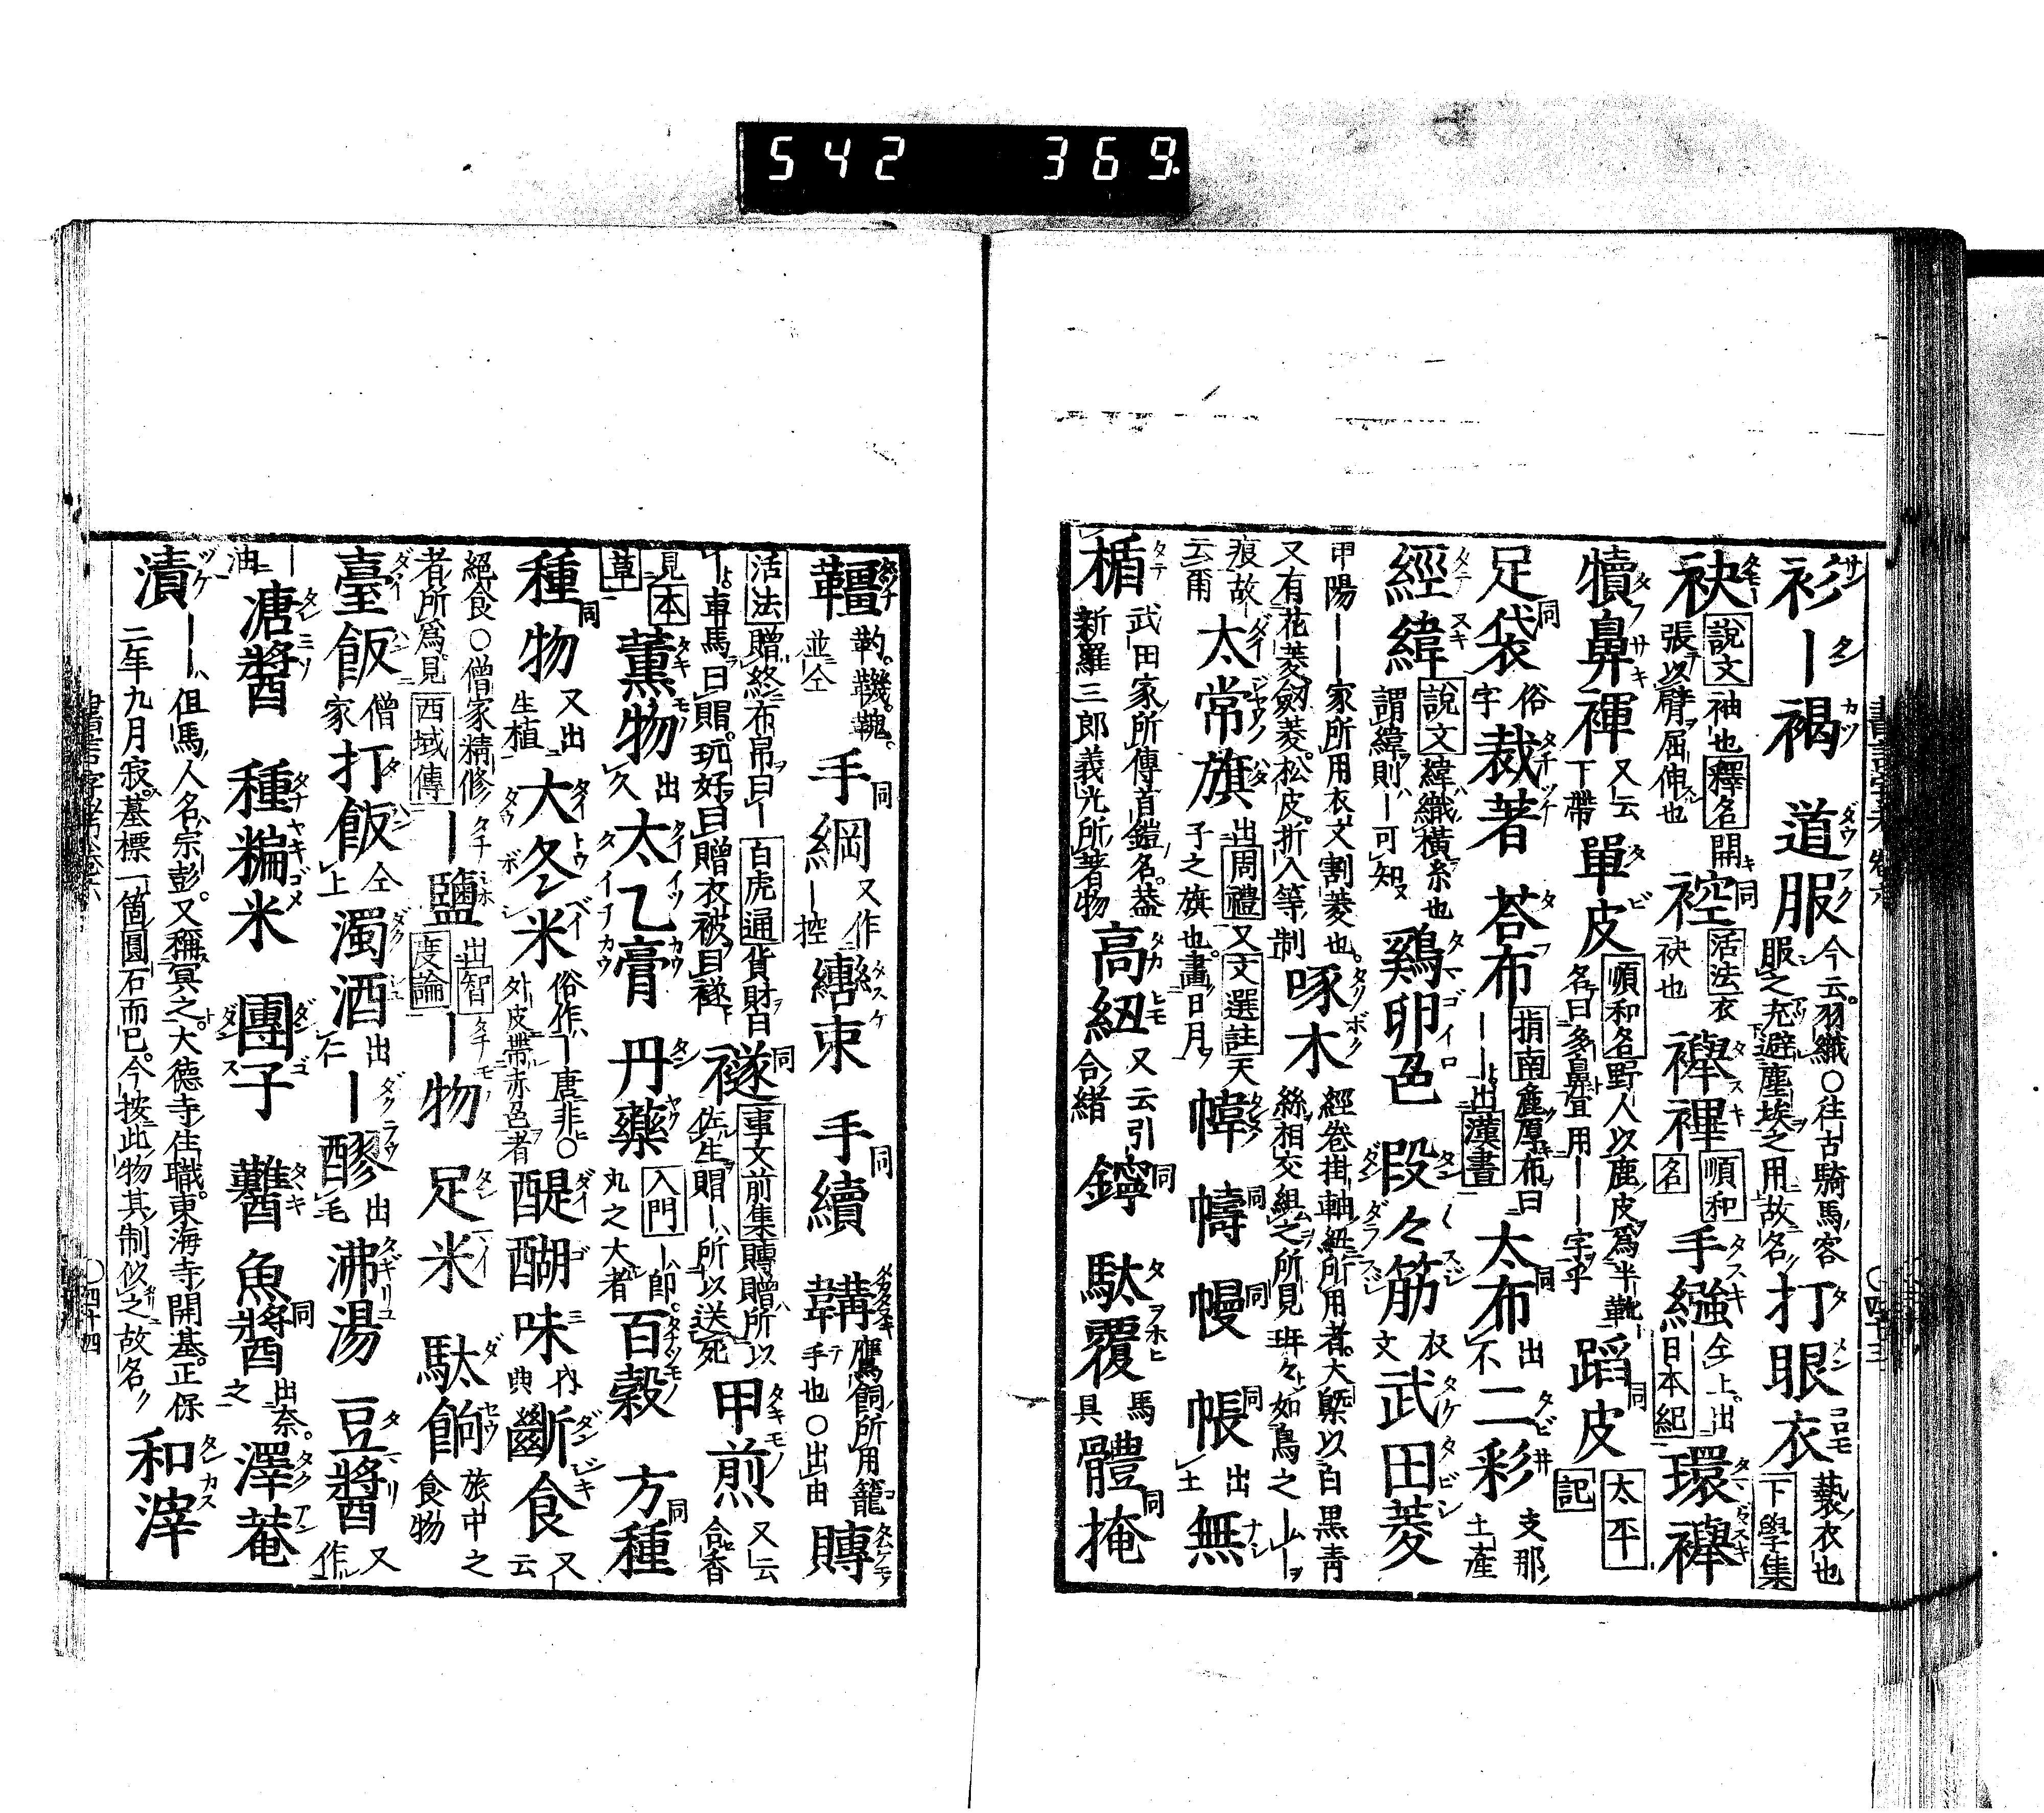 542 369
衫丨褐 道服 今云羽織○往古騎馬ノ客服之充避塵埃之用故名 打眼衣 褻衣也 下學集
袂 說文 袖也 釋名 開張以臂屈伸也 䘯 同 活法 衣袂也 襷褌 順和名 手繦 仝上出 日本紀 環襷
犢鼻褌 又云下帶 單皮 順和名 野人以鹿皮爲半靴名曰多鼻宜用丨丨字乎 蹈皮 同 太平記
足袋 同 俗字 裁著 荅布 指南 麁厚布曰丨丨出 漢書 太布 同 出不 二彩 支那土產
經緯 說文 緯織橫糸也謂緯則丨可知 鷄卵色 段々筋 衣文 武田菱
甲陽丨丨家所用衣文割菱也又有花菱劔菱松皮折入等制 啄木 經卷掛軸紐所用者大槩以白黒青絲相交組之所見班々如鳥之丨丨
痕故云爾 太常旗 出 周禮 又 文選註 天子之旗也畫日月 幃 幬 同 幔 同 帳 同 出土 無
楯 武田家所傳首鎧名葢新羅三郎義光所著物 高紐 又云引合緒 鑏 同 駄覆 馬具 體掩 同
韁 靮 鞿 鞚 並仝 手綱 同 又作丨控 纏束 手續 同 韝 鷹飼所用籠手也○出由 賻
活法 贈終布帛曰丨 白虎通 貨財曰丨車馬曰賵玩好曰贈衣被曰襚 襚 同 事文前集 賻贈所以佐生賵丨所以送死 甲煎 又云合香
見 本草 薰物 出久 太乙膏 丹藥 入門 丨卽丸之大者 百穀 方種 同
種物 同 又出生植 大冬米 俗作丨唐非○外皮帶赤色者 醍醐味 內典 斷食 又云
絕食○僧家精修者所爲見 西域傳 丨鹽 出 智度論 丨物 足米 駄餉 旅中之食物
臺飯 僧家 打飯 仝上 濁酒 出仁 丨醪 出毛 沸湯 豆醬 又作
丨油 溏醬 種䊧米 團子 魚醬 同 出奈之 澤菴
漬 丨丨但馬人名宗彭又稱冥之大德寺住職東海寺開基正保二年九月寂墓標一箇圓石而已今按此物其制似之故名 和滓
書言字考 卷六 ○四十三
書言字考 卷六 ○四十四